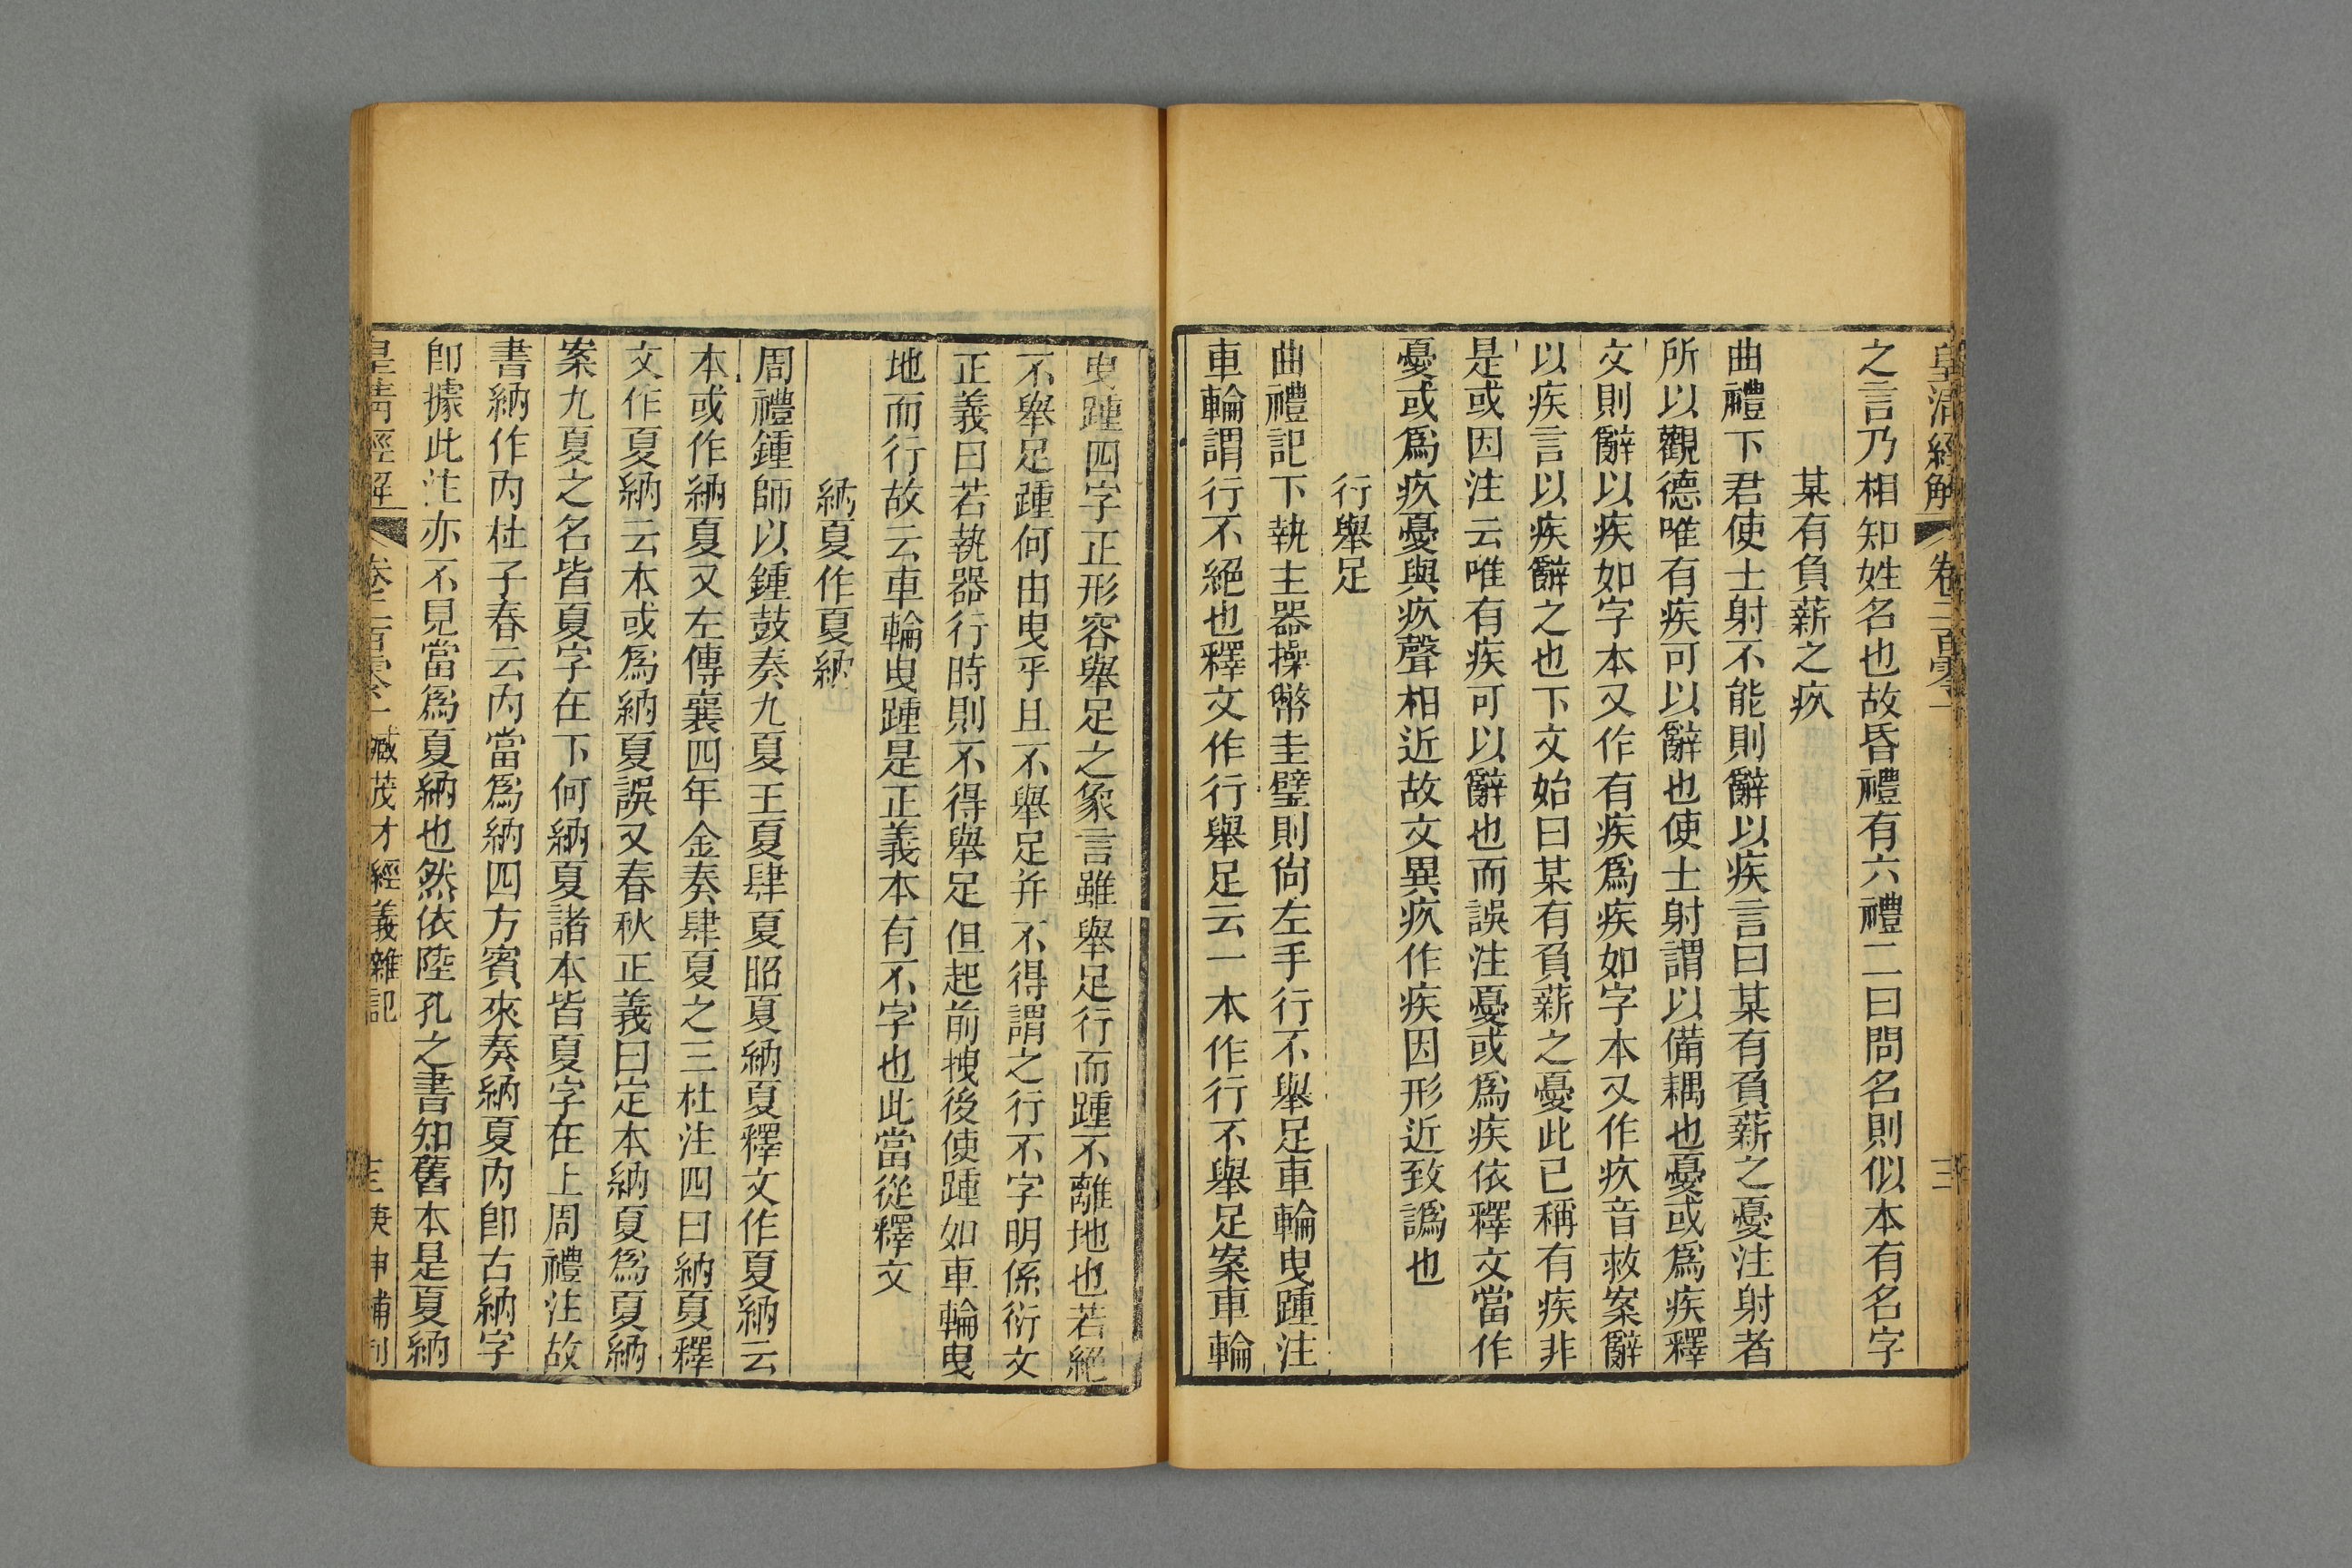 皇清經解 卷二百零一 三
之言乃相知姓名也故昏禮有六禮二曰問名則似本有名字
某有負薪之疚
曲禮下君使士射不能則辭以疾言曰某有負薪之憂注射者
所以觀德唯有疾可以辭也使士射謂以備耦也憂或爲疾釋
文則辭以疾如字本又作有疾爲疾如字本又作疚音救案辭
以疾言以疾辭之也下文始曰某有負薪之憂此已稱有疾非
是或因注云唯有疾可以辭也而誤注憂或爲疾依釋文當作
憂或爲疚憂與疚聲相近故文異疚作疾因形近致譌也
行舉足
曲禮記下執主器操幣圭璧則尙左手行不舉足車輪曳踵注
車輪謂行不絕也釋文作行舉足云一本作行不舉足案車輪
曳踵四字正形容舉足之象言雖舉足行而踵不離地也若絕
不舉足踵何由曳乎且不舉足并不得謂之行不字明係衍文
正義曰若執器行時則不得舉足但起前拽後使踵如車輪曳
地而行故云車輪曳踵是正義本有不字也此當從釋文
納夏作夏納
周禮鍾師以鍾鼓奏九夏王夏肆夏昭夏納夏釋文作夏納云
本或作納夏又左傳襄四年金奏肆夏之三杜注四曰納夏釋
文作夏納云本或爲納夏誤又春秋正義曰定本納夏爲夏納
案九夏之名皆夏字在下何納夏諸本皆夏字在上周禮注故
書納作內杜子春云內當爲納四方賓來奏納夏內卽古納字
卽據此注亦不見當爲夏納也然依陸孔之書知舊本是夏納
皇清經解 卷二百零一 臧茂才經義雜記 三 庚申補刊